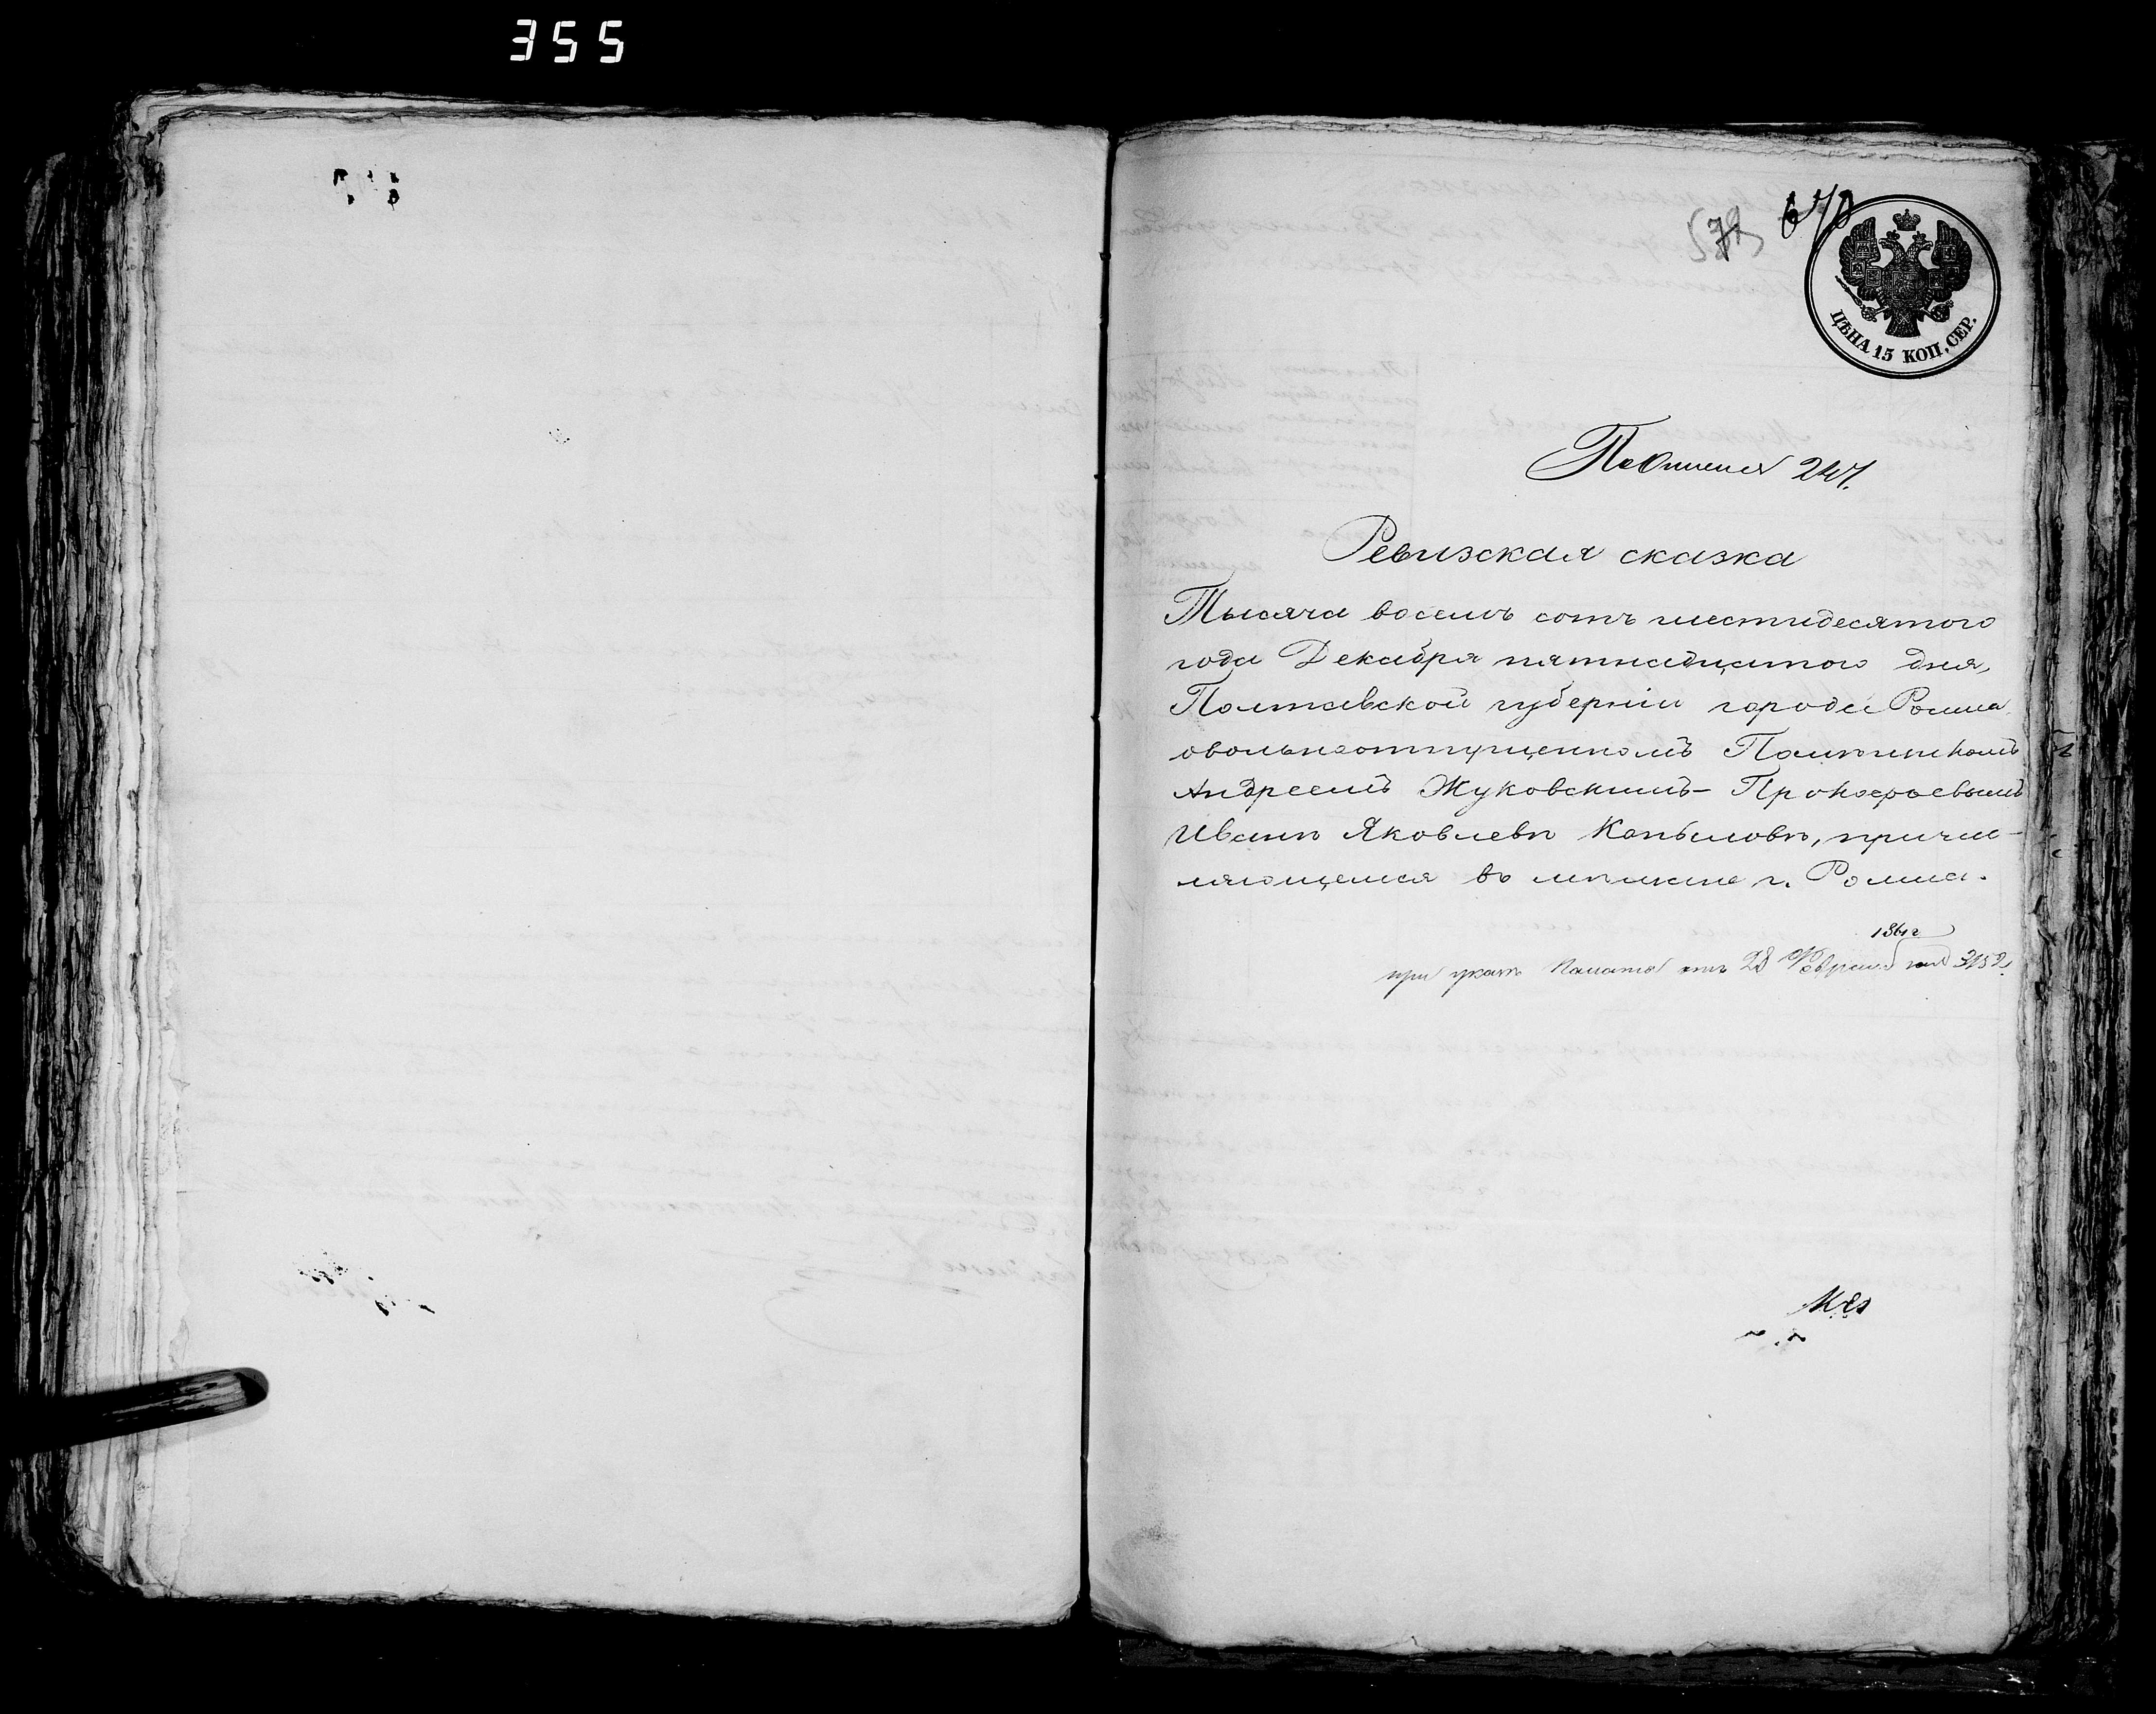 355
578
ЦѢНА 15 КОП. СЕР.
По описи 247.
Ревизская сказка
Тысяча восемь сотъ шестидесятого
года Декабря пятнадцатого дня,
Полтавской губерніи города Ромна
овольноотпущенномъ
Андреемъ Жуковскимъ-Прокофьевымъ
Иванѣ Яковлевѣ Копыловѣ, причи-
сляющемся въ мѣщане г. Ромна.
1861 г
при указѣ Палаты отъ 28 Февраля за № 3152